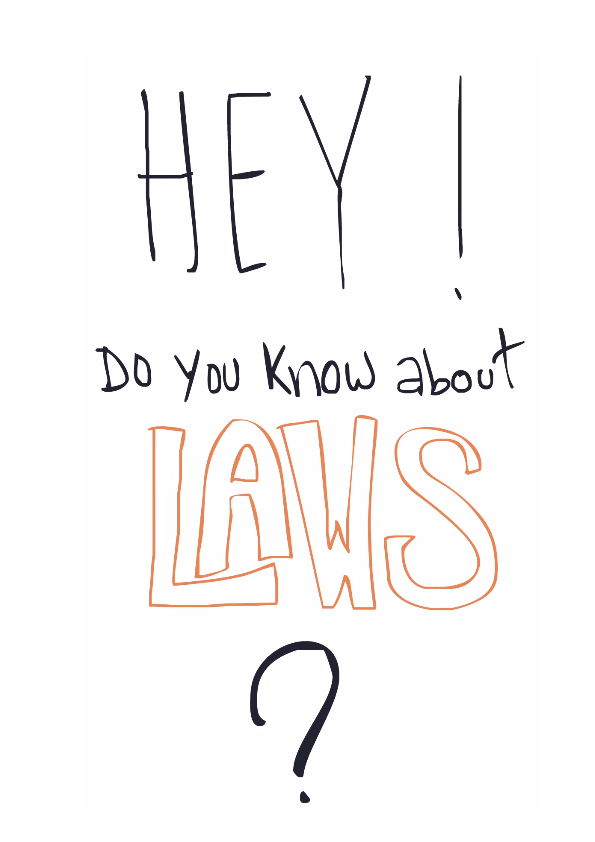 HEY!
Do you know about
LAWS
?